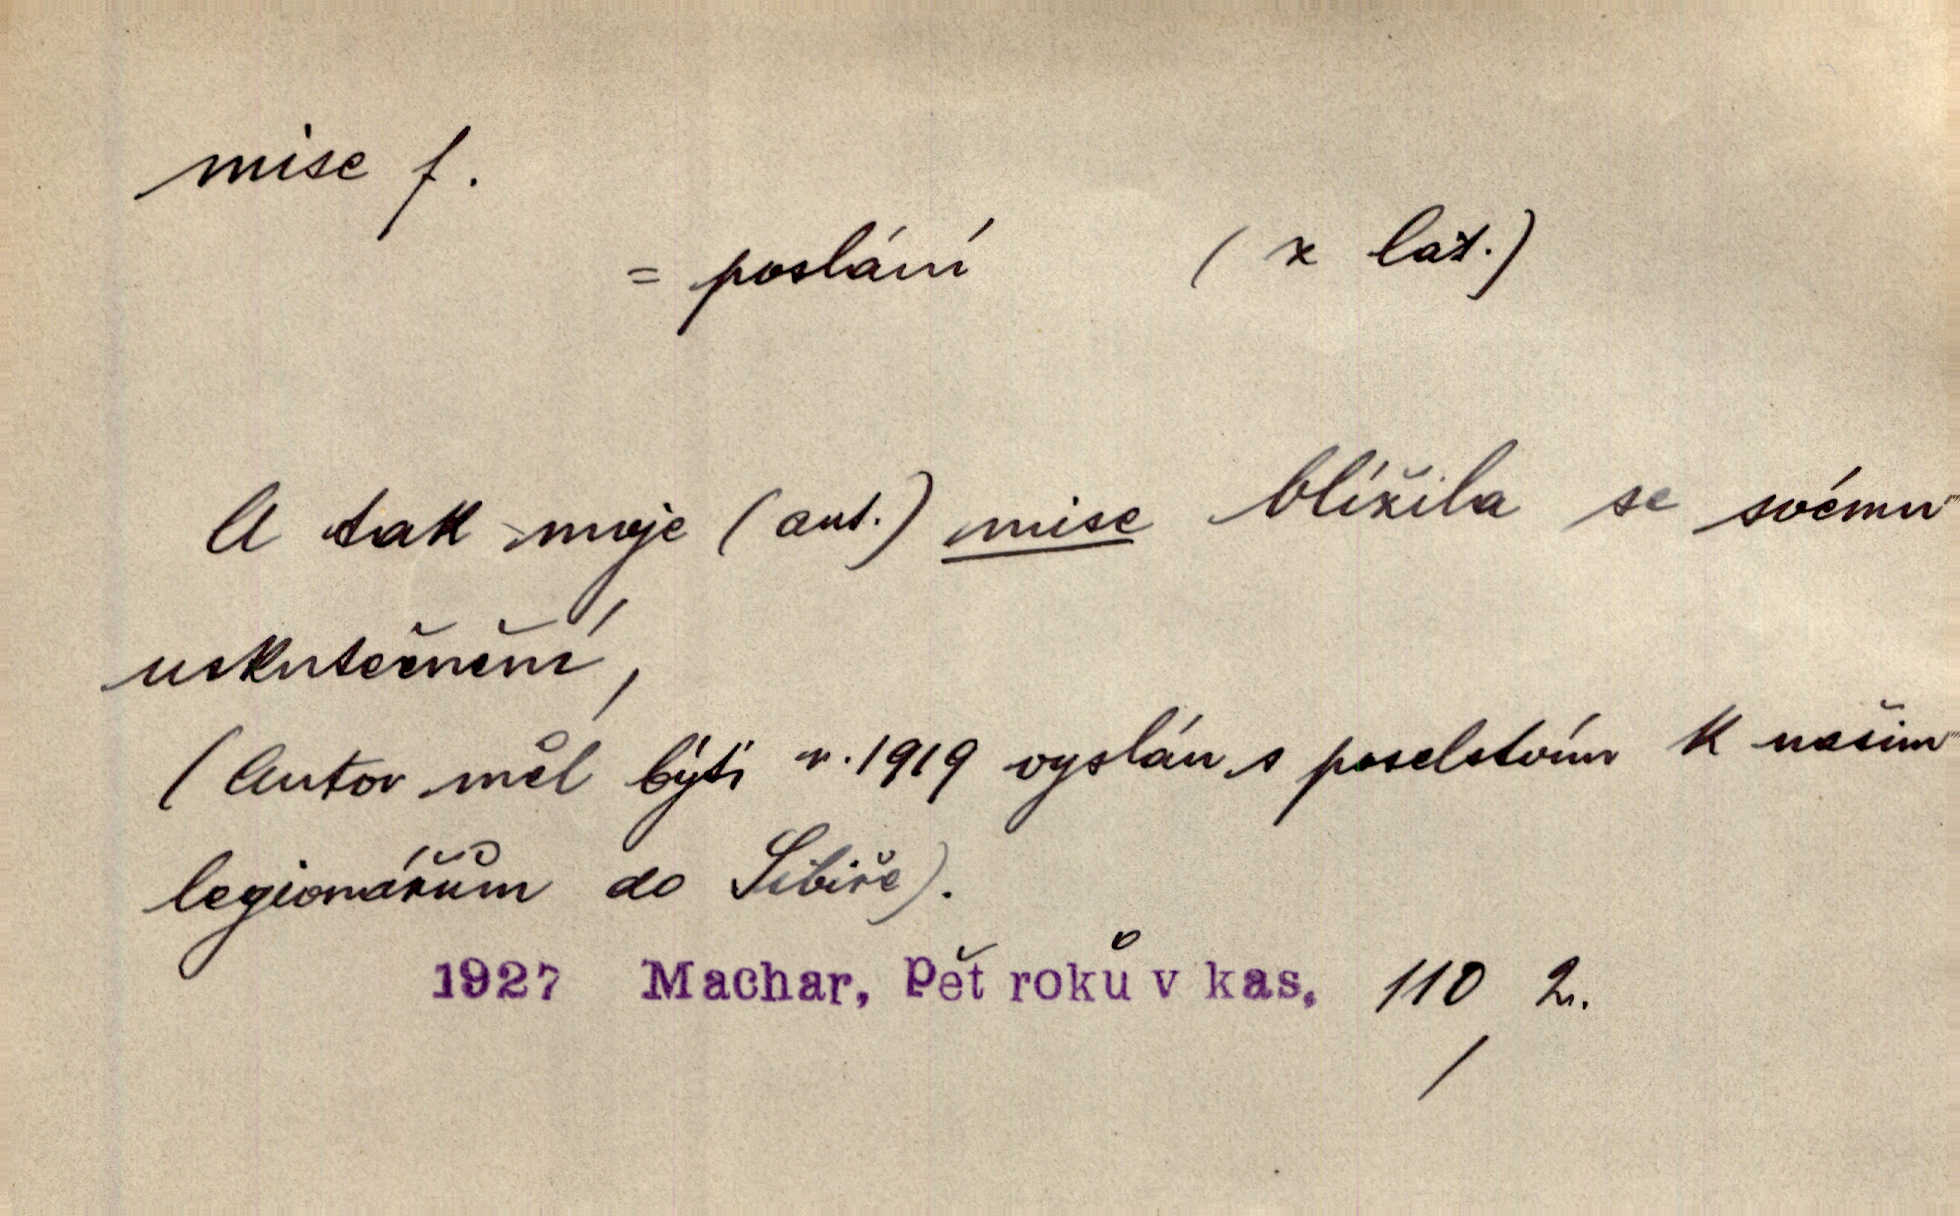 mise f.
= poslání (z lat.)
A tak moje (aut.) mise blížila se svému
uskutečnění,
(Autor měl býti r. 1919 vyslán s poselstvím k našim
legionářům do Sibiře).
1927 Machar, Pět roků v kas. 110 2.
/